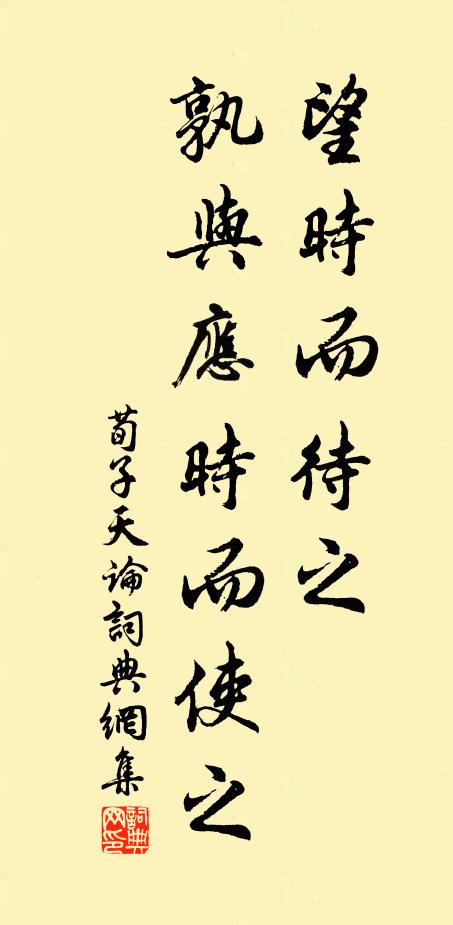 望時而待之
孰與應時而使之
荀子天論詞典網集
詞典網印